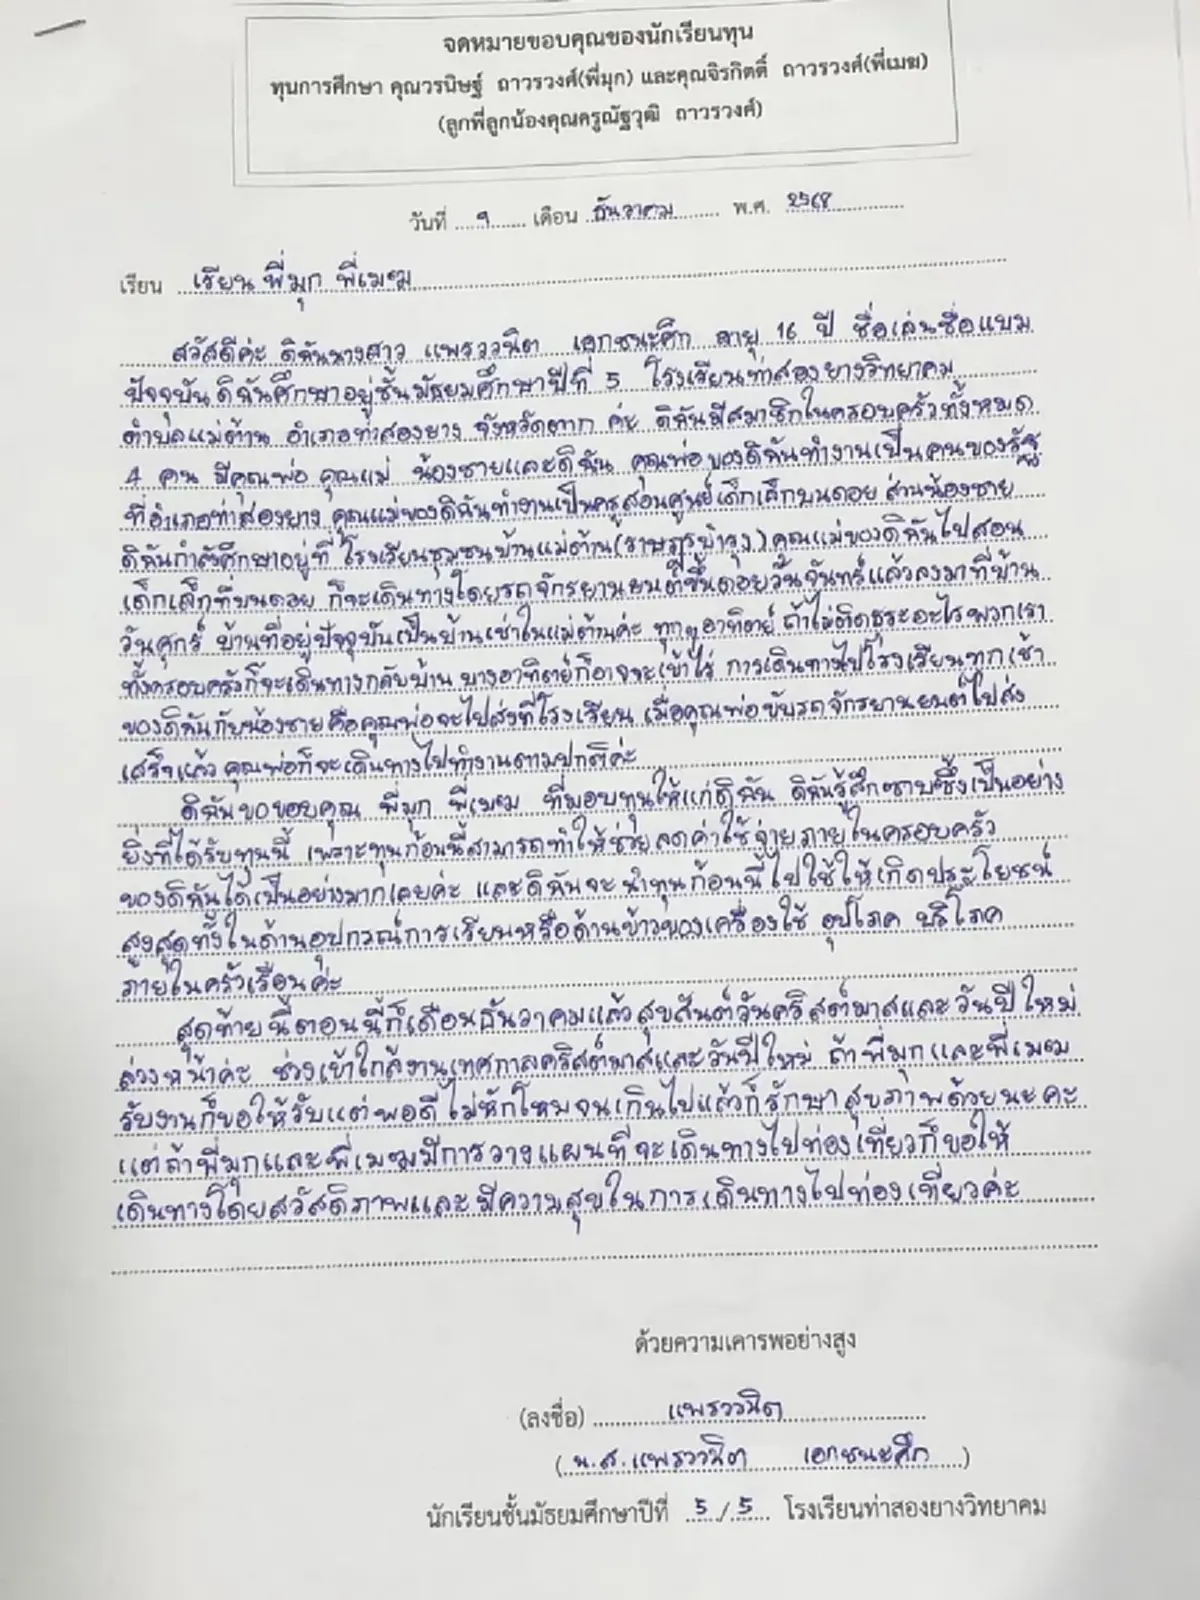 จดหมายขอบคุณของนักเรียนทุน
ทุนการศึกษา คุณวรนิษฐ์ ถาวรวงศ์(พี่มุก) และคุณจิรกิตติ์ ถาวรวงศ์(พี่เมฆ)
(ลูกพี่ลูกน้องคุณครูณัฐวุฒิ ถาวรวงศ์)
วันที่ 9 เดือน ธันวาคม พ.ศ. 2568
เรียน เรียน พี่มุก พี่เมฆ
สวัสดีค่ะ ดิฉันนางสาว แพรววนิต เอกชนะศึก อายุ 16 ปี ชื่อเล่นชื่อแบม
ปัจจุบันดิฉันศึกษาอยู่ชั้นมัธยมศึกษาปีที่ 5 โรงเรียนท่าสองยางวิทยาคม
ตำบลแม่ต้าน อำเภอท่าสองยาง จังหวัดตาก ค่ะ ดิฉันมีสมาชิกในครอบครัวทั้งหมด
4 คน มีคุณพ่อ คุณแม่ น้องชายและดิฉัน คุณพ่อของดิฉันทำงานเป็นคนของรัฐ
ที่อำเภอท่าสองยาง คุณแม่ของดิฉันทำงานเป็นครูสอนศูนย์เด็กเล็กบนดอย ส่วนน้องชาย
ดิฉันกำลังศึกษาอยู่ที่ โรงเรียนชุมชนบ้านแม่ต้าน(ราษฎร์บำรุง) คุณแม่ของดิฉันไปสอน
เด็กเล็กที่บนดอย ก็จะเดินทางโดยรถจักรยานยนต์ขึ้นดอยวันจันทร์แล้วลงมาที่บ้าน
วันศุกร์ บ้านที่อยู่ปัจจุบันเป็นบ้านเช่าในแม่ต้านค่ะ ทุกๆอาทิตย์ ถ้าไม่ติดธุระอะไรพวกเรา
ทั้งครอบครัวก็จะเดินทางกลับบ้าน บางอาทิตย์ก็อาจจะเข้าไร่ การเดินทางไปโรงเรียนทุกเช้า
ของดิฉันกับน้องชายคือคุณพ่อจะไปส่งที่โรงเรียน เมื่อคุณพ่อขับรถจักรยานยนต์ไปส่ง
เสร็จแล้ว คุณพ่อก็จะเดินทางไปทำงานตามปกติค่ะ
ดิฉันขอขอบคุณ พี่มุก พี่เมฆ ที่มอบทุนให้แก่ดิฉัน ดิฉันรู้สึกซาบซึ้งเป็นอย่าง
ยิ่งที่ได้รับทุนนี้ เพราะทุนก้อนนี้สามารถทำให้ช่วยลดค่าใช้จ่ายภายในครอบครัว
ของดิฉันได้เป็นอย่างมากเลยค่ะ และดิฉันจะนำทุนก้อนนี้ไปใช้ให้เกิดประโยชน์
สูงสุดทั้งในด้านอุปกรณ์การเรียนหรือด้านข้าวของเครื่องใช้ อุปโภค บริโภค
ภายในครัวเรือนค่ะ
สุดท้ายนี้ตอนนี้ก็เดือนธันวาคมแล้วสุขสันต์วันคริสต์มาสและวันปีใหม่
ล่วงหน้าค่ะ ช่วงเข้าใกล้งานเทศกาลคริสต์มาสและวันปีใหม่ ถ้าพี่มุกและพี่เมฆ
รับงานก็ขอให้รับแต่พอดีไม่หักโหมจนเกินไปแล้วก็รักษาสุขภาพด้วยนะคะ
แต่ถ้าพี่มุกและพี่เมฆมีการวางแผนที่จะเดินทางไปท่องเที่ยวก็ขอให้
เดินทางโดยสวัสดิภาพและมีความสุขในการเดินทางไปท่องเที่ยวค่ะ
ด้วยความเคารพอย่างสูง
(ลงชื่อ) แพรววนิต
(น.ส.แพรววนิต เอกชนะศึก)
นักเรียนชั้นมัธยมศึกษาปีที่ 5/5 โรงเรียนท่าสองยางวิทยาคม